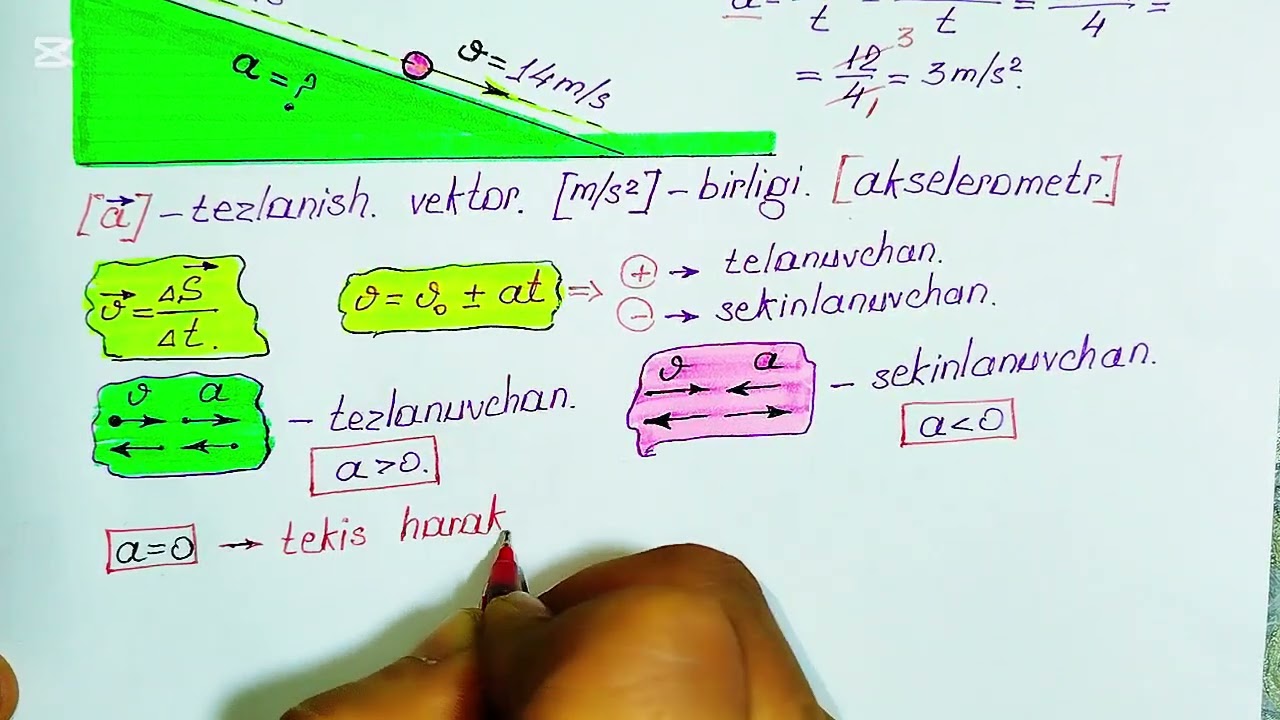 a = ?
ϑ = 14 m/s
t t 4
= 12/4 = 3 m/s².
3
1
[a⃗] – tezlanish. vektor. [m/s²] – birligi. [akselerometr.]
ϑ⃗ = ΔS⃗/Δt.
ϑ = ϑ₀ ± at ⇒ (+) → telanuvchan.
(−) → sekinlanuvchan.
ϑ a – tezlanuvchan.
a > 0.
ϑ a – sekinlanuvchan.
a < 0
a = 0 → tekis harak